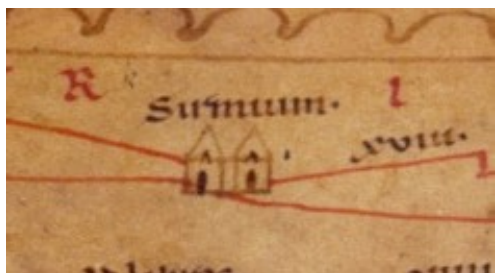 R I
Sirmium.
xviii.